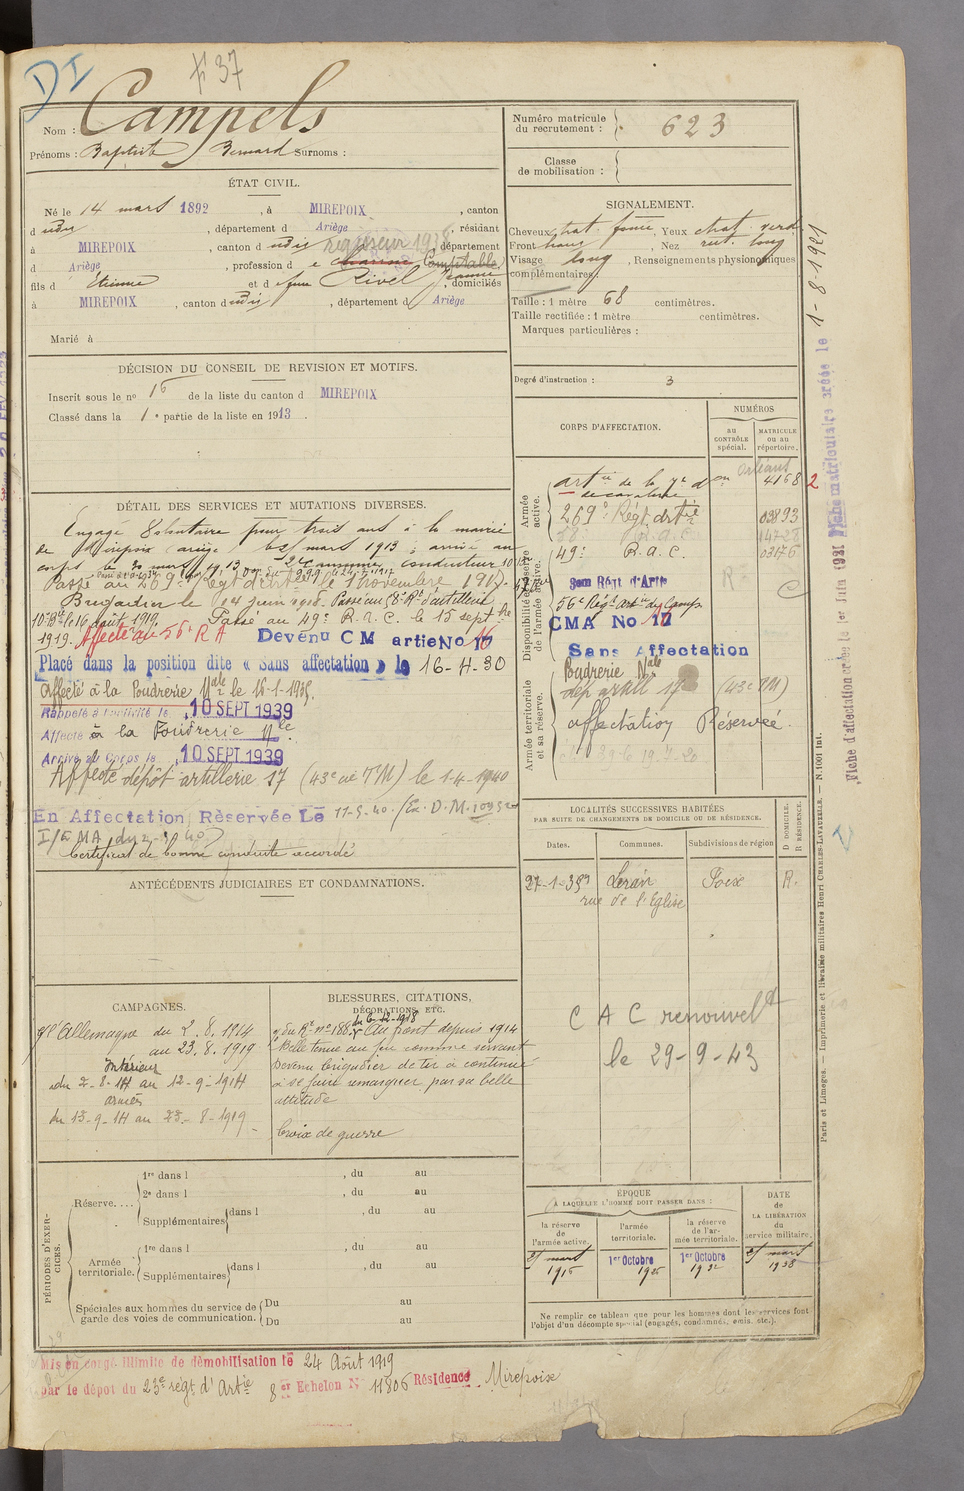 DI
37
Nom : Campels
Prénoms : Baptiste Bernard Surnoms :
Numéro matricule du recrutement : 623
Classe de mobilisation :
ÉTAT CIVIL.
Né le 14 mars 1892, à MIREPOIX, canton
d udit, département d Ariège, résidant
à MIREPOIX, canton d udit, département
d Ariège, profession d e Comptable
fils d Etienne et d e feue Rivel Jeanne, domiciliés
à MIREPOIX, canton d udit, département d Ariège
Marié à
SIGNALEMENT.
Cheveux chat. foncé, Yeux chat. verd.
Front haut, Nez rect. long
Visage long, Renseignements physionomiques
complémentaires:
Taille : 1 mètre 68 centimètres.
Taille rectifiée : 1 mètre centimètres.
Marques particulières :
Degré d'instruction : 3
DÉCISION DU CONSEIL DE REVISION ET MOTIFS.
Inscrit sous le no 16 de la liste du canton d MIREPOIX
Classé dans la 1e partie de la liste en 1913.
DÉTAIL DES SERVICES ET MUTATIONS DIVERSES.
Engagé Volontaire pour trois ans à la mairie
de Mirepoix (Ariège) le 27 mars 1913; arrivé au
corps le 30 mars 1913 2e canonnier conducteur
Passé au 269e Régt d'Artie le 1 novembre 1917.
Brigadier le 14 juin 1918. Passé au 58e Rt d'artillerie
10e Bie le 16 août 1919. Passé au 49e R.A.C. le 15 septbre
1919. Affecté au 56e R A Devenu C M artie No 16
Placé dans la position dite « Sans affectation » le 16-4-30
Affecté à la Poudrerie Nale le 16-1-1935.
Rappelé à l'activité le 10 SEPT 1939
Affecté à la Poudrerie Nle
Arrivé au Corps le 10 SEPT 1939
Affecté dépôt artillerie 17 (43e cie TM) le 1-4-1940
En Affectation Réservée Le 11-5-40. (Ex. D.M.
Certificat de bonne conduite accordé
CORPS D'AFFECTATION.
NUMÉROS
au CONTRÔLE spécial.
MATRICULE ou au répertoire.
Armée active.
Artie de la 7e don de cavalerie 4168 2
Orléans
269e Régt Artie
49e R.A.C.
Disponibilité et réserve de l'armée active.
56e Régt Artie de Camp.
CMA No 17
Sans Affectation
Armée territoriale et sa réserve.
Poudrerie Nale
dép art 17 (43e TM)
affectation Réservée.
ANTÉCÉDENTS JUDICIAIRES ET CONDAMNATIONS.
LOCALITÉS SUCCESSIVES HABITÉES
PAR SUITE DE CHANGEMENTS DE DOMICILE OU DE RÉSIDENCE.
Dates. Communes. Subdivisions de région
D DOMICILE. R RÉSIDENCE.
27-1-35 Léran Foix R.
rue de l'Eglise
C A C renouvelé
le 29-9-43
CAMPAGNES.
cte l'Allemagne du 2.8.1914
au 23.8.1919
Intérieur
du 2-8-14 au 12-9-1914
armées
du 13-9-14 au 23-8-1919
BLESSURES, CITATIONS,
DÉCORATIONS, ETC.
o/ du Rt no 186 du 6-12-1918 "Au front depuis 1914
Belle tenue au feu comme servant
Devenu brigadier de tir a continué
à se faire remarquer par sa belle
attitude
Croix de guerre
PÉRIODES D'EXERCICES.
Réserve....
1re dans l , du au
2e dans l , du au
Supplémentaires dans l , du au
Armée territoriale.
1re dans l , du au
Supplémentaires dans l , du au
Spéciales aux hommes du service de garde des voies de communication.
Du au
Du au
ÉPOQUE
A LAQUELLE L'HOMME DOIT PASSER DANS :
la réserve de l'armée active.
l'armée territoriale.
la réserve de l'armée territoriale.
DATE de LA LIBÉRATION du service militaire.
27 mars 1916
1er Octobre 1926
1er Octobre 1932
27 mars 1938
Ne remplir ce tableau que pour les hommes dont les services font
l'objet d'un décompte spécial (engagés, condamnés, omis, etc.).
Mis en congé illimité de démobilisation le 24 Août 1919
par le dépôt du 23e régt d'Artie 8er Echelon No 11806 Résidence Mirepoix
Paris et Limoges. — Imprimerie et librairie militaires Henri CHARLES-LAVAUZELLE. — N. 1001 Int.
1-8-1921